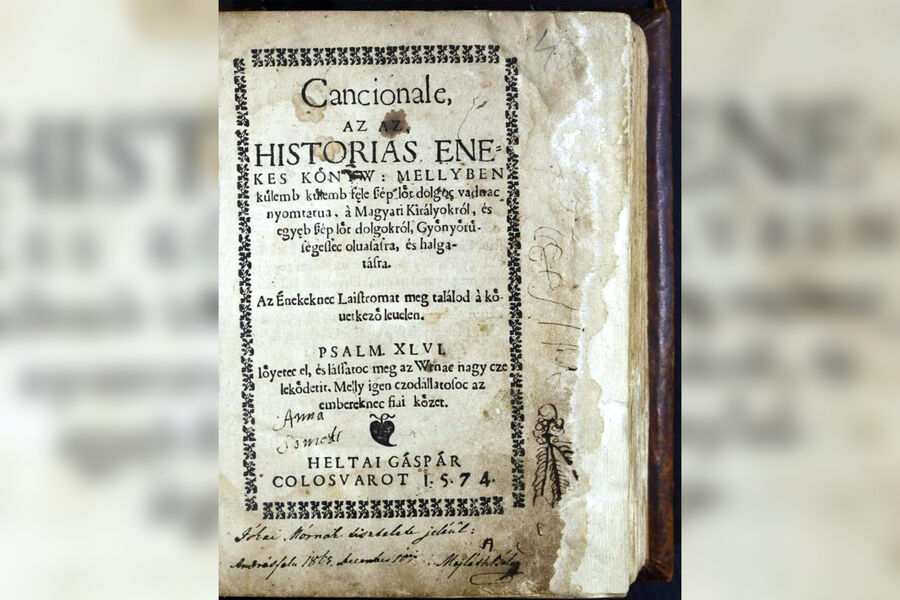 Cancionale,
AZ AZ,
HISTORIAS ENE-
KES KŐNYW: MELLYBEN
kůlemb kůlemb fele ſiep lőt dolgoc vadnac
nyomtatua, à Magyari Királyokról, és
egyeb ſiep lőt dolgokról, Győnyőrů-
ſegeſſec oluaſaſra, és halga-
táſra.
Az Énekeknec Laiſtromat meg találod à kő-
uetkező leuelen.
PSALM. XLVI.
Iőyetec el, és láſſatoc meg az Wrnac nagy cze
lekődetit. Melly igen czodállatoſoc az
embereknec fiai kőzet.
Anna
HELTAI GÁSPÁR
COLOSVAROT 1.5.74.
Jókai Mórnak tisztelete jeléül:
Andrásfalu december 10